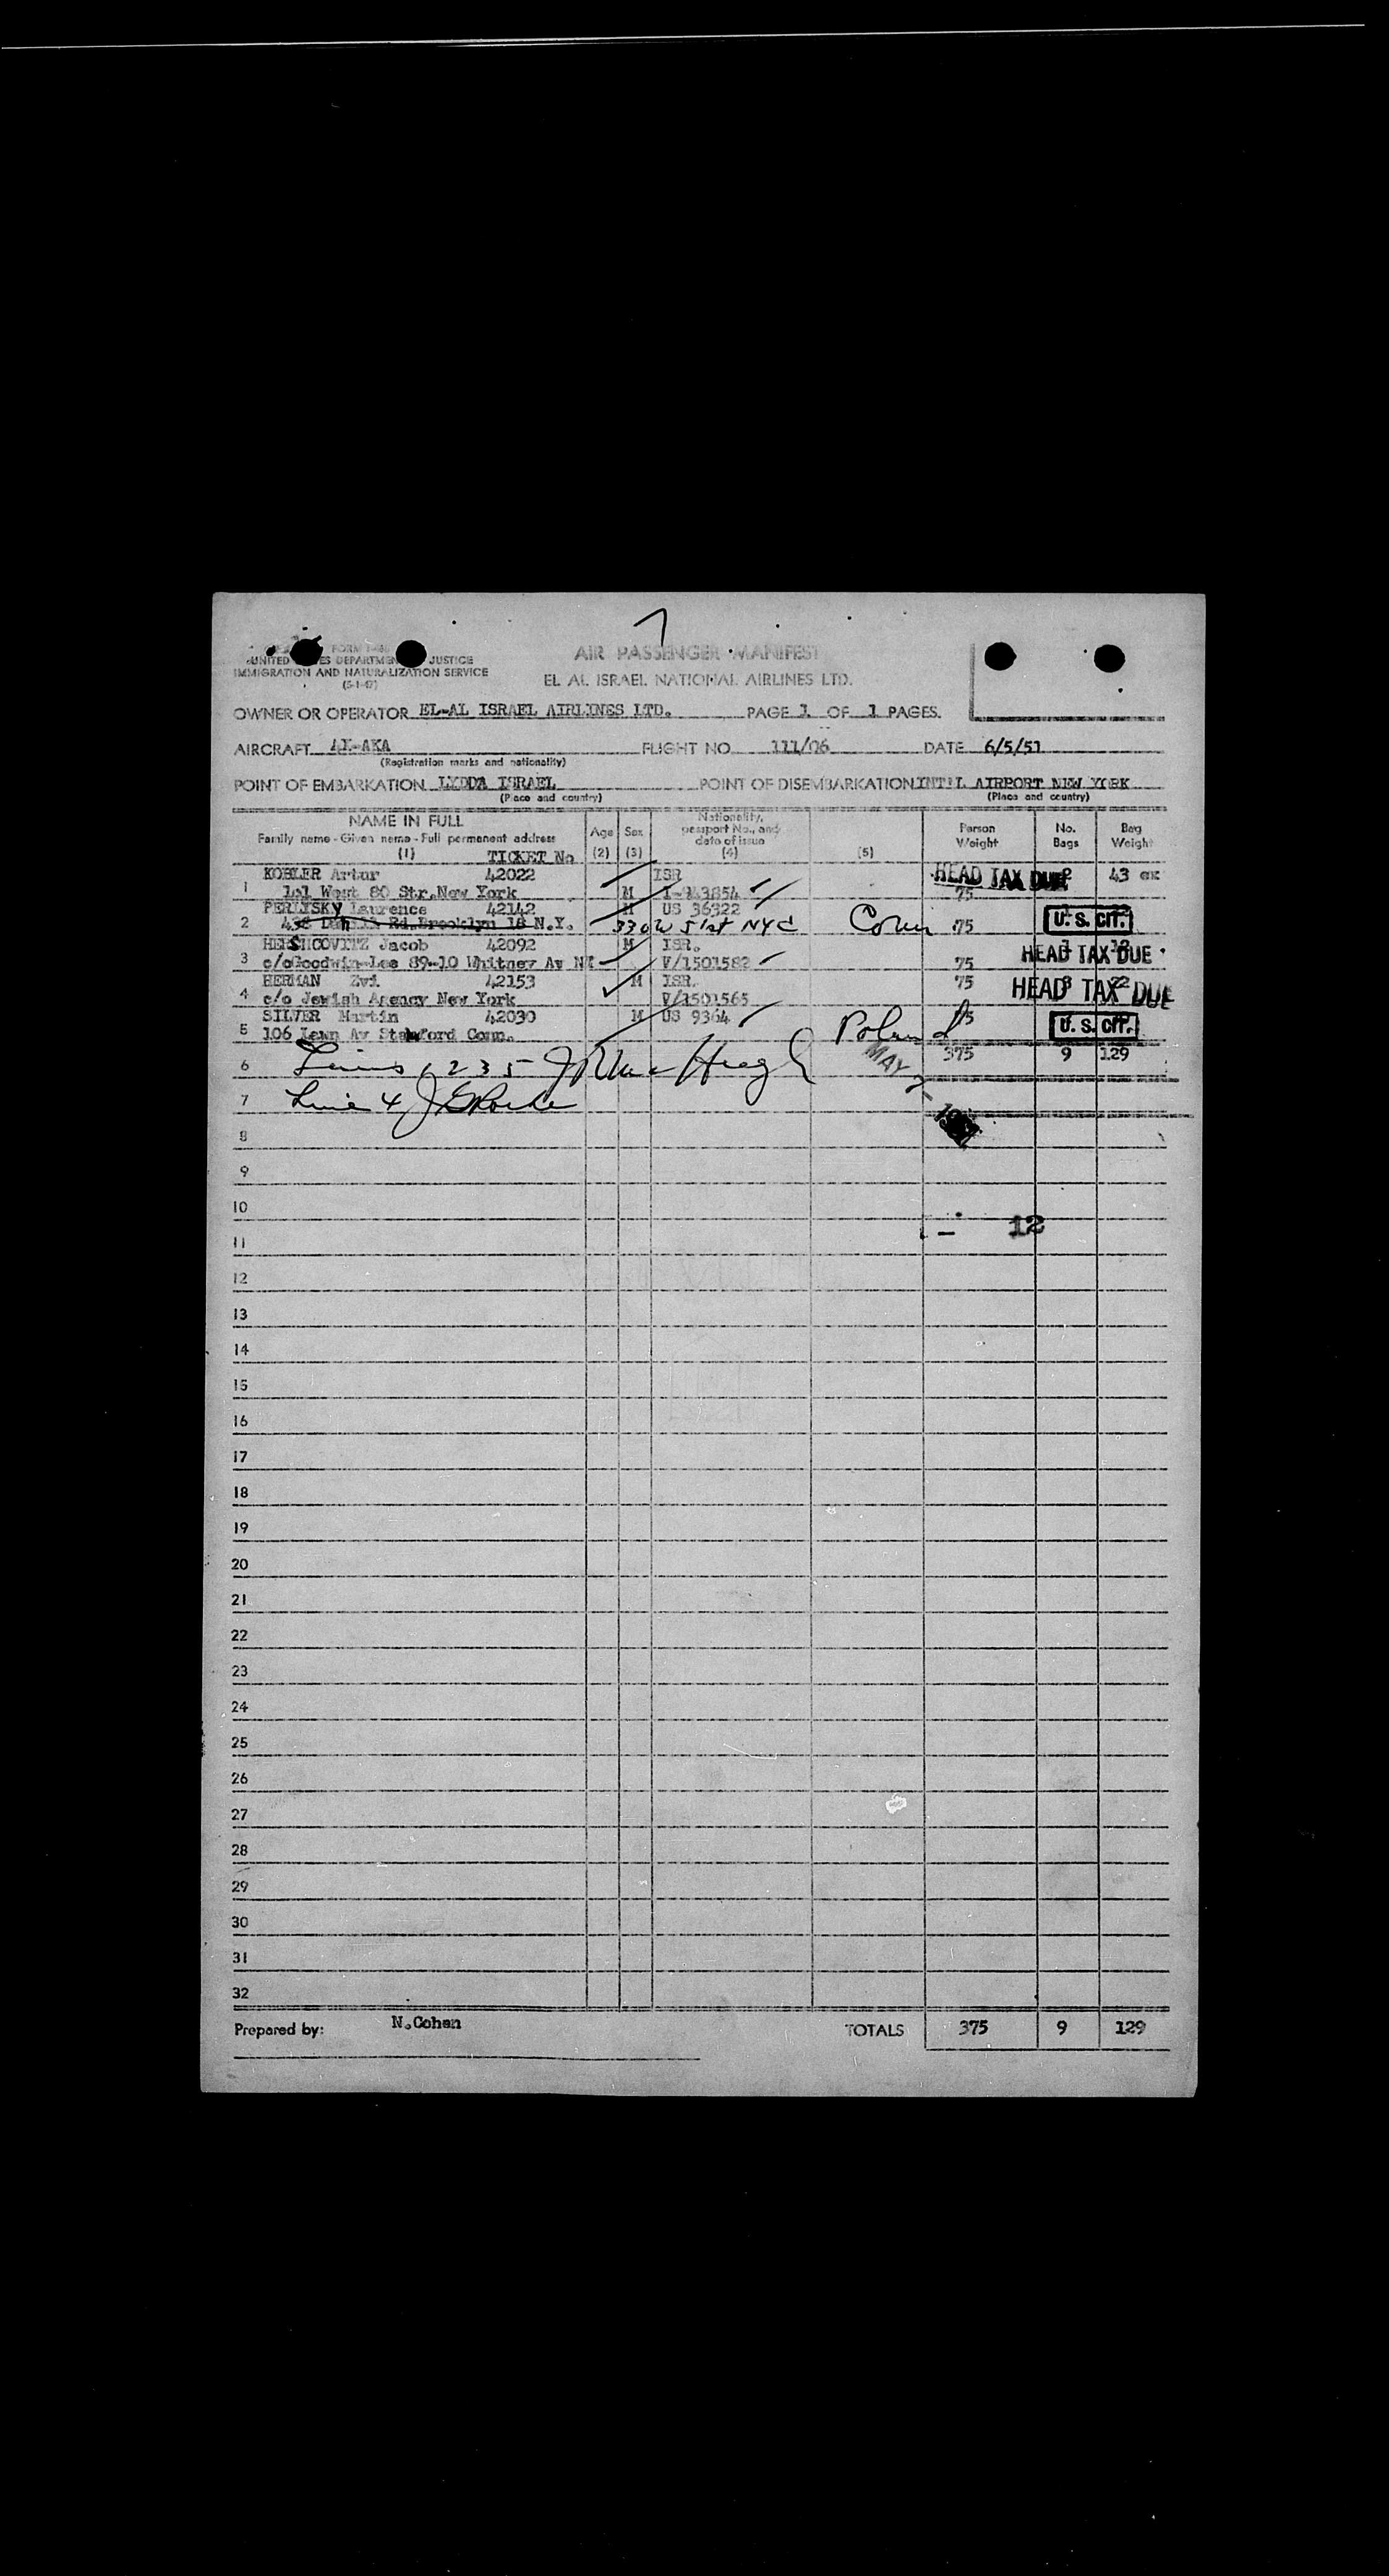 7
FORM I-
UNITED STATES DEPARTMENT JUSTICE
IMMIGRATION AND NATURALIZATION SERVICE
(5-1-47)
AIR PASSENGER MANIFEST
EL AL ISRAEL NATIONAL AIRLINES LTD.
OWNER OR OPERATOR EL-AL ISRAEL AIRLINES LTD. PAGE 1 OF 1 PAGES.
AIRCRAFT 4X-AKA FLIGHT NO 111/06 DATE 6/5/51
(Registration marks and nationality)
POINT OF EMBARKATION LYDDA ISRAEL POINT OF DISEMBARKATION INT'L AIRPORT NEW YORK
(Place and country) (Place and country)
NAME IN FULL Age Sex Nationality, passport No., and date of issue Person Weight No. Bags Bag Weight
Family name - Given name - Full permanent address
(1) TICKET No (2) (3) (4) (5)
KOBLER Artur 42022 ISR HEAD TAX DUE 2 43 ex
1 101 West 80 Str.New York M 75
PERLYSKY Laurence 42142 M US 36322
2 Rd.Brooklyn 18 N.Y. 330 W 51st NYC Conn 75 U. S. CIT.
HERSHCOVITZ Jacob 42092 M ISR.
3 c/oGoodwin-Lee 89-10 Whitney Av NY V/1501582 75 HEAD TAX DUE
HERMAN Zvi 42153 M ISR. 75 3 22 HEAD TAX DUE
4 c/o Jewish Agency New York V/1501565
SILVER Martin 42030 M US 9364 Poland 75
5 106 Lawn Av Stamford Conn. U. S. CIT.
6 Lines 1 2 3 5 375 9 129
MAY
7 Line 4
8
9
10
12
11
12
13
14
15
16
17
18
19
20
21
22
23
24
25
26
27
28
29
30
31
32
Prepared by: N.Cohen TOTALS 375 9 129